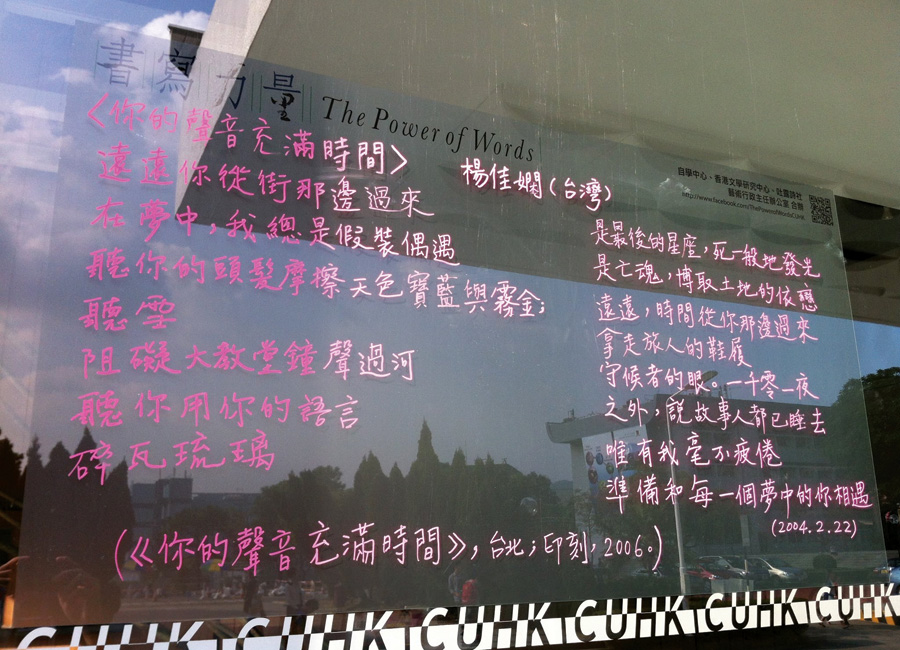 書寫力量
The Power of Words
自學中心、香港文學研究中心、吐露詩社
藝術行政主任辦公室 合辦
http://www.facebook.com/ThePowerofWordsCUHK
〈你的聲音充滿時間〉
楊佳嫻(台灣)
遠遠你從街那邊過來
在夢中,我總是假裝偶遇
聽你的頭髮摩擦天色寶藍與霧金;
聽雲
阻礙大教堂鐘聲過河
聽你用你的語言
碎瓦琉璃
是最後的星座,死一般地發光
是亡魂,博取土地的依戀
遠遠,時間從你那邊過來
拿走旅人的鞋履
守候者的眼。一千零一夜
之外,說故事人都已睡去
唯有我毫不疲倦
準備和每一個夢中的你相遇
(2004.2.22)
(《你的聲音充滿時間》,台北;印刻,2006。)
CUHK CUHK CUHK CUHK CUHK CUHK CUHK